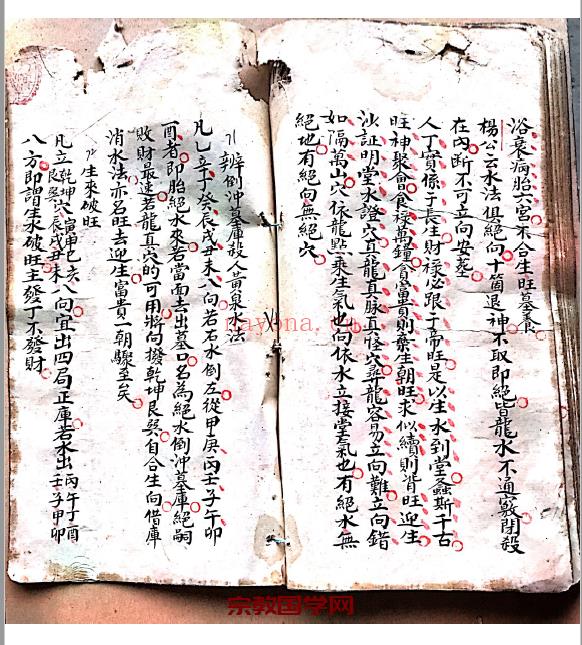 浴衰病胎六宮不合生旺墓養
楊公云水法俱絕向十箇退神不取即絕皆龍水不通竅閉殺
在內斷不可立向安塟
人丁實係于長生財祿必跟于帝旺是以生水到堂螽斯千古
旺神聚會食祿萬鐘貪富貴則棄生朝旺求似續則背旺迎生
沙証明堂水證穴真龍真脉真怪穴尋龍容易立向難立向錯
如隔萬山穴依龍點乘生氣也向依水立接堂氣也有絕水無
絕地有絕向無絕穴
辨倒冲墓庫殺人黃泉之法
凡乙辛丁癸辰戌丑未八向若右水倒左從甲庚丙壬子午卯
酉者即胎絕水來若當面去出墓口名為絕水倒冲墓庫絕嗣
敗財最速若龍真穴的可用將向撥乾坤艮巽自合生向借庫
消水法亦名旺去迎生富貴一朝驟至矣
生來破旺
凡立乾坤艮巽寅申巳亥辰戌丑未八向宜出四局正庫若水出丙午子酉壬子甲卯
八方即謂生水破旺主發丁不發財
nayona.cn
宗教国学网